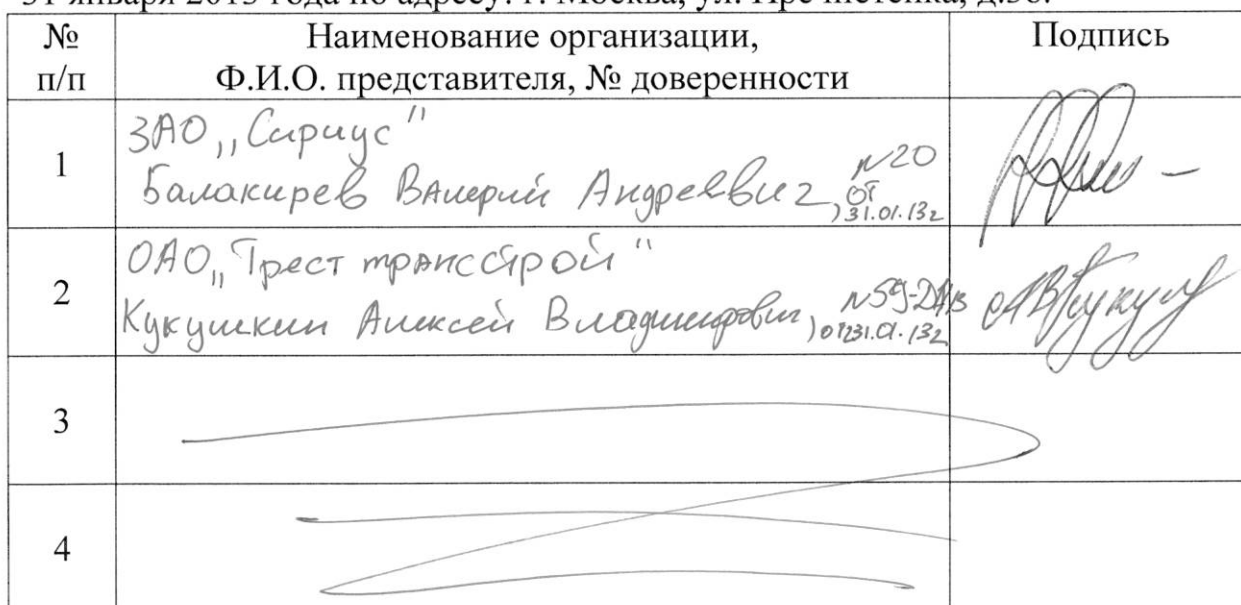 31 января 2013 года по адресу: г. Москва, ул. Пречистенка, д.38.
№ п/п
Наименование организации,
Ф.И.О. представителя, № доверенности
Подпись
1
ЗАО „Сириус"
Балакирев Валерий Андреевич, №20
от
31.01.13г
2
ОАО „Трест трансстрой"
Кукушкин Алексей Владимирович,
от 31.01.13г
3
4